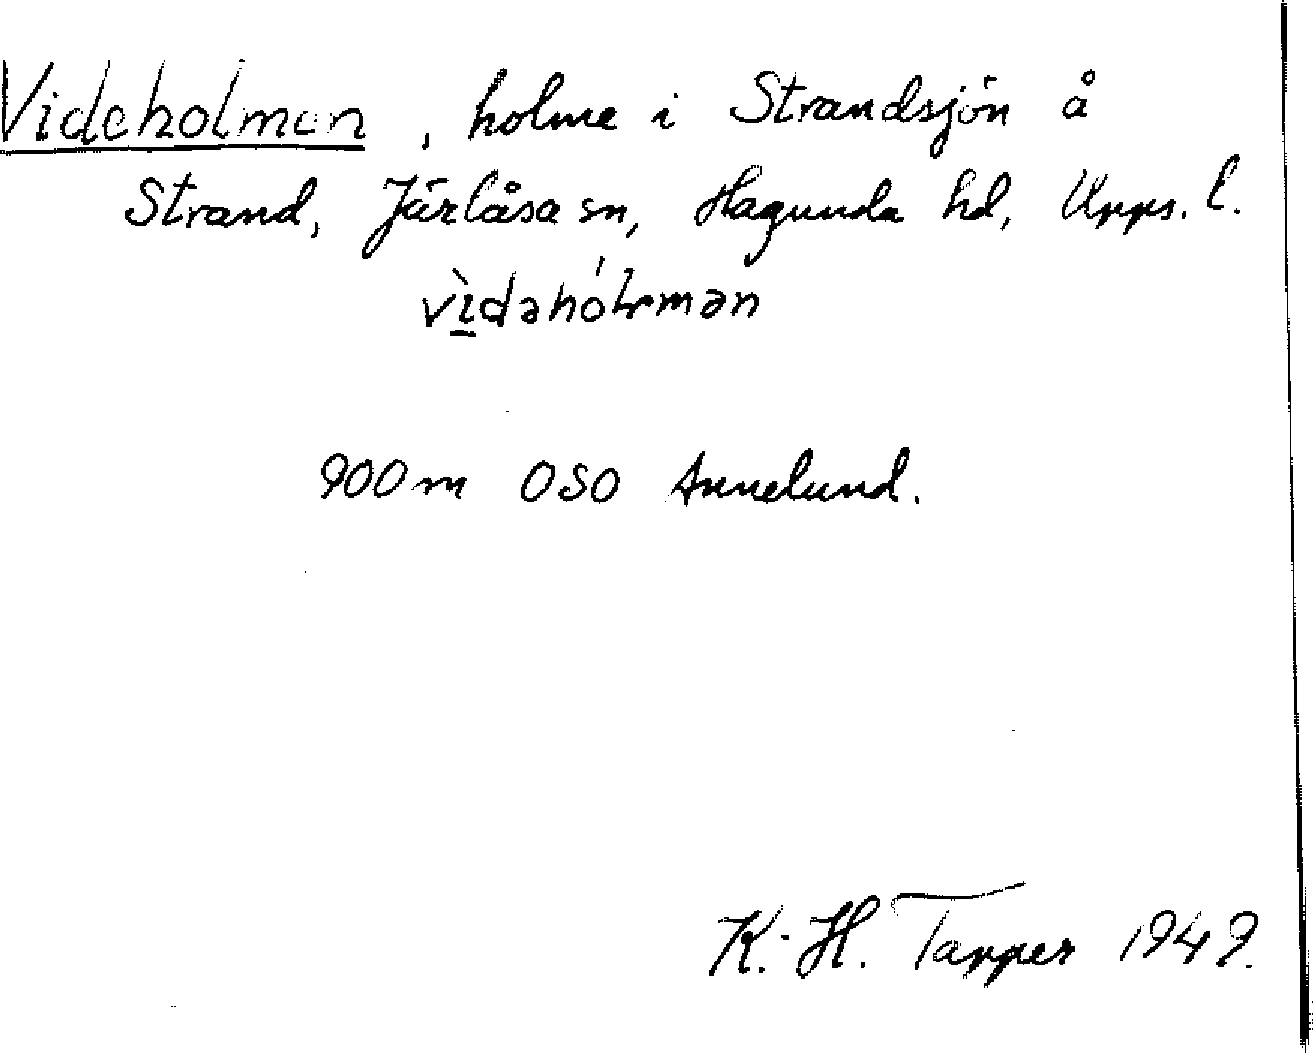 Videholmen, holme i Strandsjön å
Strand, Järlåsa sn, Hagunda hd, Upps. l.
900m OSO Annelund.
K.-H. Tapper 1949.